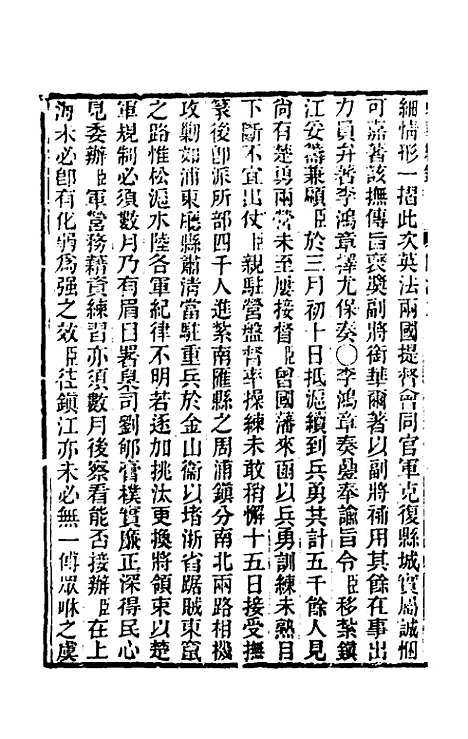 細情形一摺此次英法兩國提督會同官軍克復縣城實屬誠悃
可嘉著該撫傳旨褒奬副將銜華爾著以副將補用其餘在事出
力員弁著李鴻章擇尤保奏○李鴻章奏疊奉諭旨令臣移紮鎮
江妥籌兼顧臣於三月初十日抵滬續到兵勇共計五千餘人見
尚有楚勇兩營未至屢接督臣曾國藩來函以兵勇訓練未熟目
下斷不宜出仗臣親駐營盤督率操練未敢稍懈十五日接受撫
篆後卽派所部四千人進紮南匯縣之周浦鎮分南北兩路相機
攻勦如浦東廳縣肅清當駐重兵於金山衞以堵浙省踞賊東竄
之路惟松滬水陸各軍紀律不明若迄加挑汰更換將領束以楚
軍規制必須數月乃有眉目署臬司劉郇膏樸實廉正深得民心
見委辦臣軍營務藉資練習亦須數月後察看能否接辦臣在上
海未必卽有化弱爲强之效臣往鎮江亦未必無一傅眾咻之虞